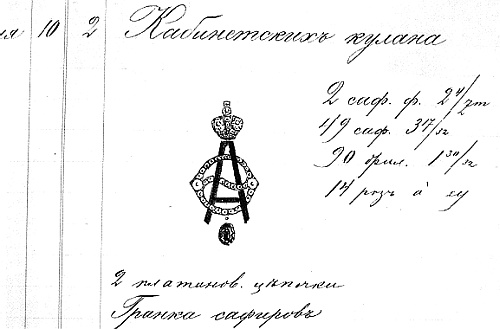 10 2 Кабинетскихъ кулана
2 саф. ф.
49 саф. 3 17/32
90 брил. 1 30/32
14 розъ à
2 платинов. цѣпочки
Гранка сафировъ